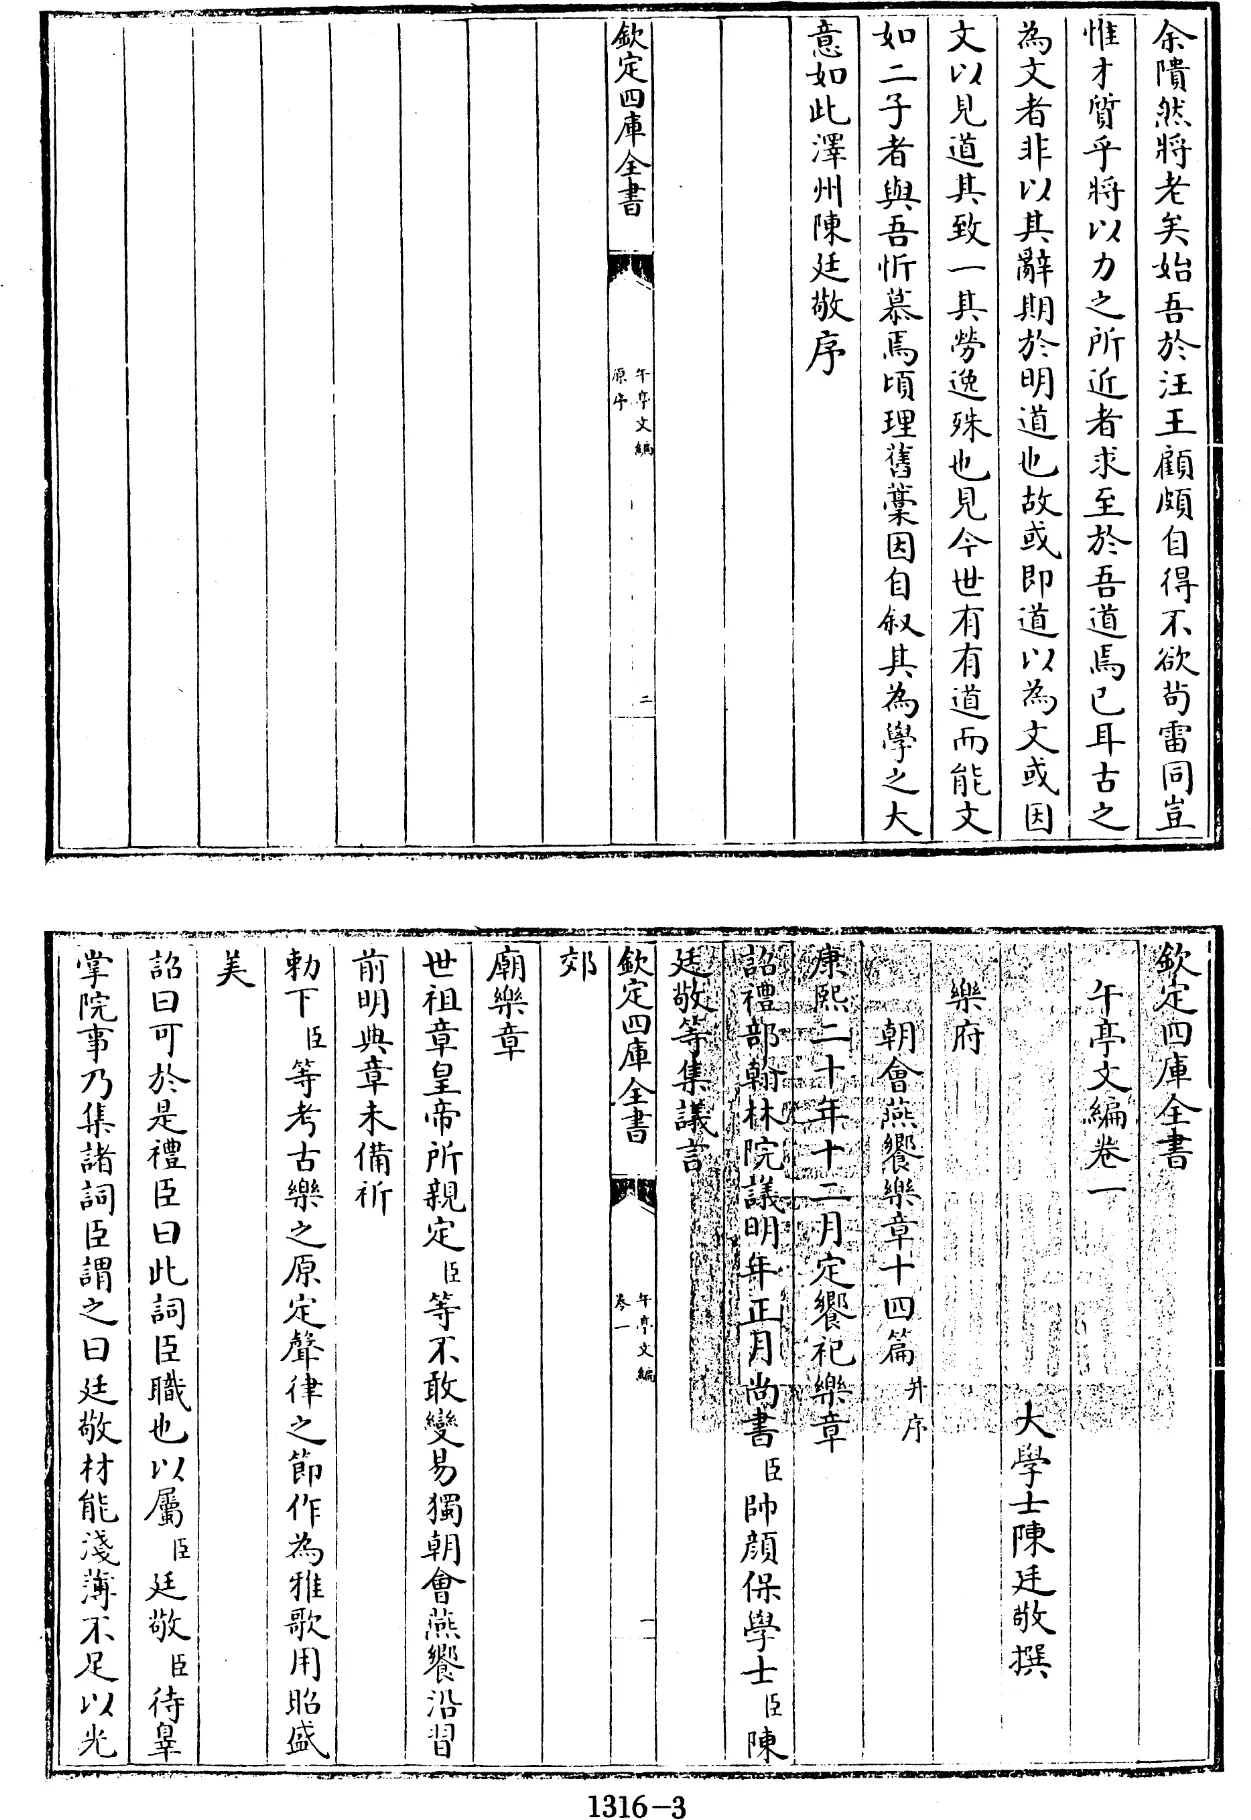 余隤然將老矣始吾於汪王顧頗自得不欲茍雷同豈
惟才質乎將以力之所近者求至於吾道焉已耳古之
為文者非以其辭期於明道也故或即道以為文或因
文以見道其致一其勞逸殊也見今世有有道而能文
如二子者與吾忻慕焉頃理舊藁因自叙其為學之大
意如此澤州陳廷敬序
欽定四庫全書
午亭文編
原序
二
欽定四庫全書
午亭文編卷一
大學士陳廷敬撰
樂府
朝會燕饗樂章十四篇 并序
康熙二十年十二月定饗祀樂章
詔禮部翰林院議明年正月尚書臣帥顔保學士臣陳
廷敬等集議言
欽定四庫全書
午亭文編
卷一
一
郊
廟樂章
世祖章皇帝所親定臣等不敢變易獨朝會燕饗沿習
前明典章未備祈
勅下臣等考古樂之原定聲律之節作為雅歌用昭盛
美
詔曰可於是禮臣曰此詞臣職也以屬臣廷敬臣待辠
掌院事乃集諸詞臣謂之曰廷敬材能淺薄不足以光
1316-3